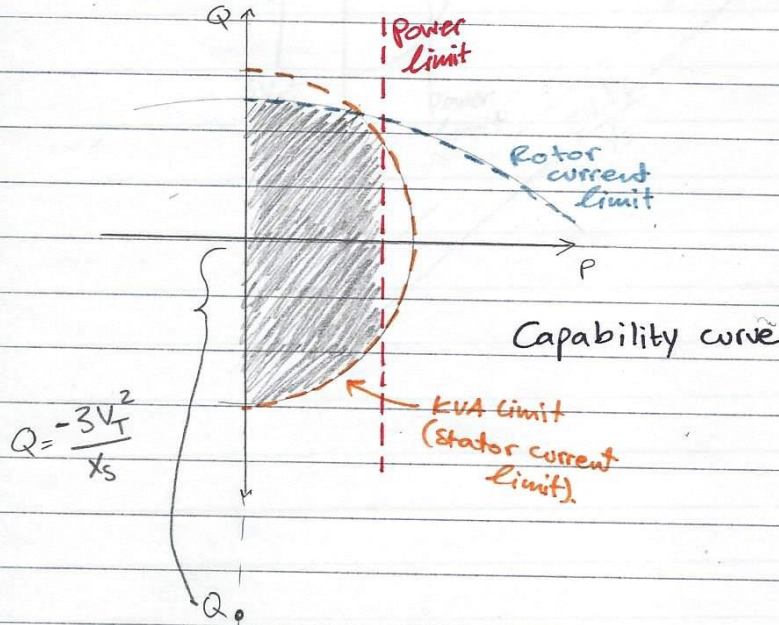 Q
Power
limit
Rotor
current
limit
P
Capability curve
Q = -3V_T^2 / X_S
KVA limit
(Stator current
limit).
Q.